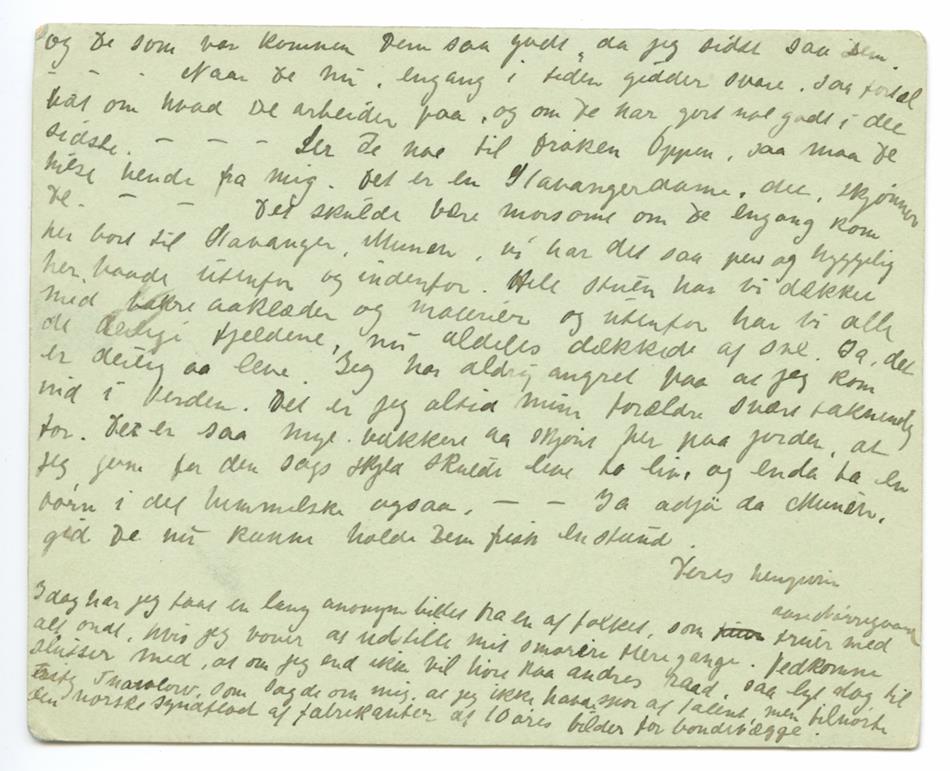 og De som var kommen Dem saa godt, da jeg sidst saa Dem.
- - - Naar De nu, engang i tiden gidder svare, saa fortæl
hvad De arbeider paa, og om De har gjort noe godt i det
sidste. - - - - Ser De noe til Frøken Oppen, saa maa De
hilse hende fra mig. Det er en Stavangerdame, det, skjønner
De. - - Det skulde være morsomt om De engang kom
her bort til Stavanger, Munch, vi har det saa pent og hyggelig
her, baade utenfor og indenfor. Hele stuen har vi dækket
med vakre aaklæder og malerier og utenfor har vi alle
de deilige fjeldene, nu aldeles dækkede af sne. Ja, det
er deilig aa leve. Jeg har aldrig angret paa at jeg kom
ind i Verden. Det er jeg altid mine forældre svært taknemlig
for. Det er saa mye vakkert aa skjønt her paa jorden, at
jeg gjerne for den sags skyld skulde leve to liv, og enda ta en
i det himmelske ogsaa. - - Ja adjø da Munch,
gid De nu kunne holde Dem frisk en stund.
Deres hengivne
Aase Nørregaard
Idag har jeg faat en lang anonym billet fra en af folket, som truer med
alt ondt, hvis jeg vover at udstille mit smøreri flere gange. Vedkomne
slutter med, at om jeg end ikke vil høre paa andres raad, saa lyt dog til
Fritz Thaulow, som sagde om mig, at jeg ikke havde spor af talent, men tilhørte
den norske syndflod af fabrikanter af 10 øres bilder for bondevægge.